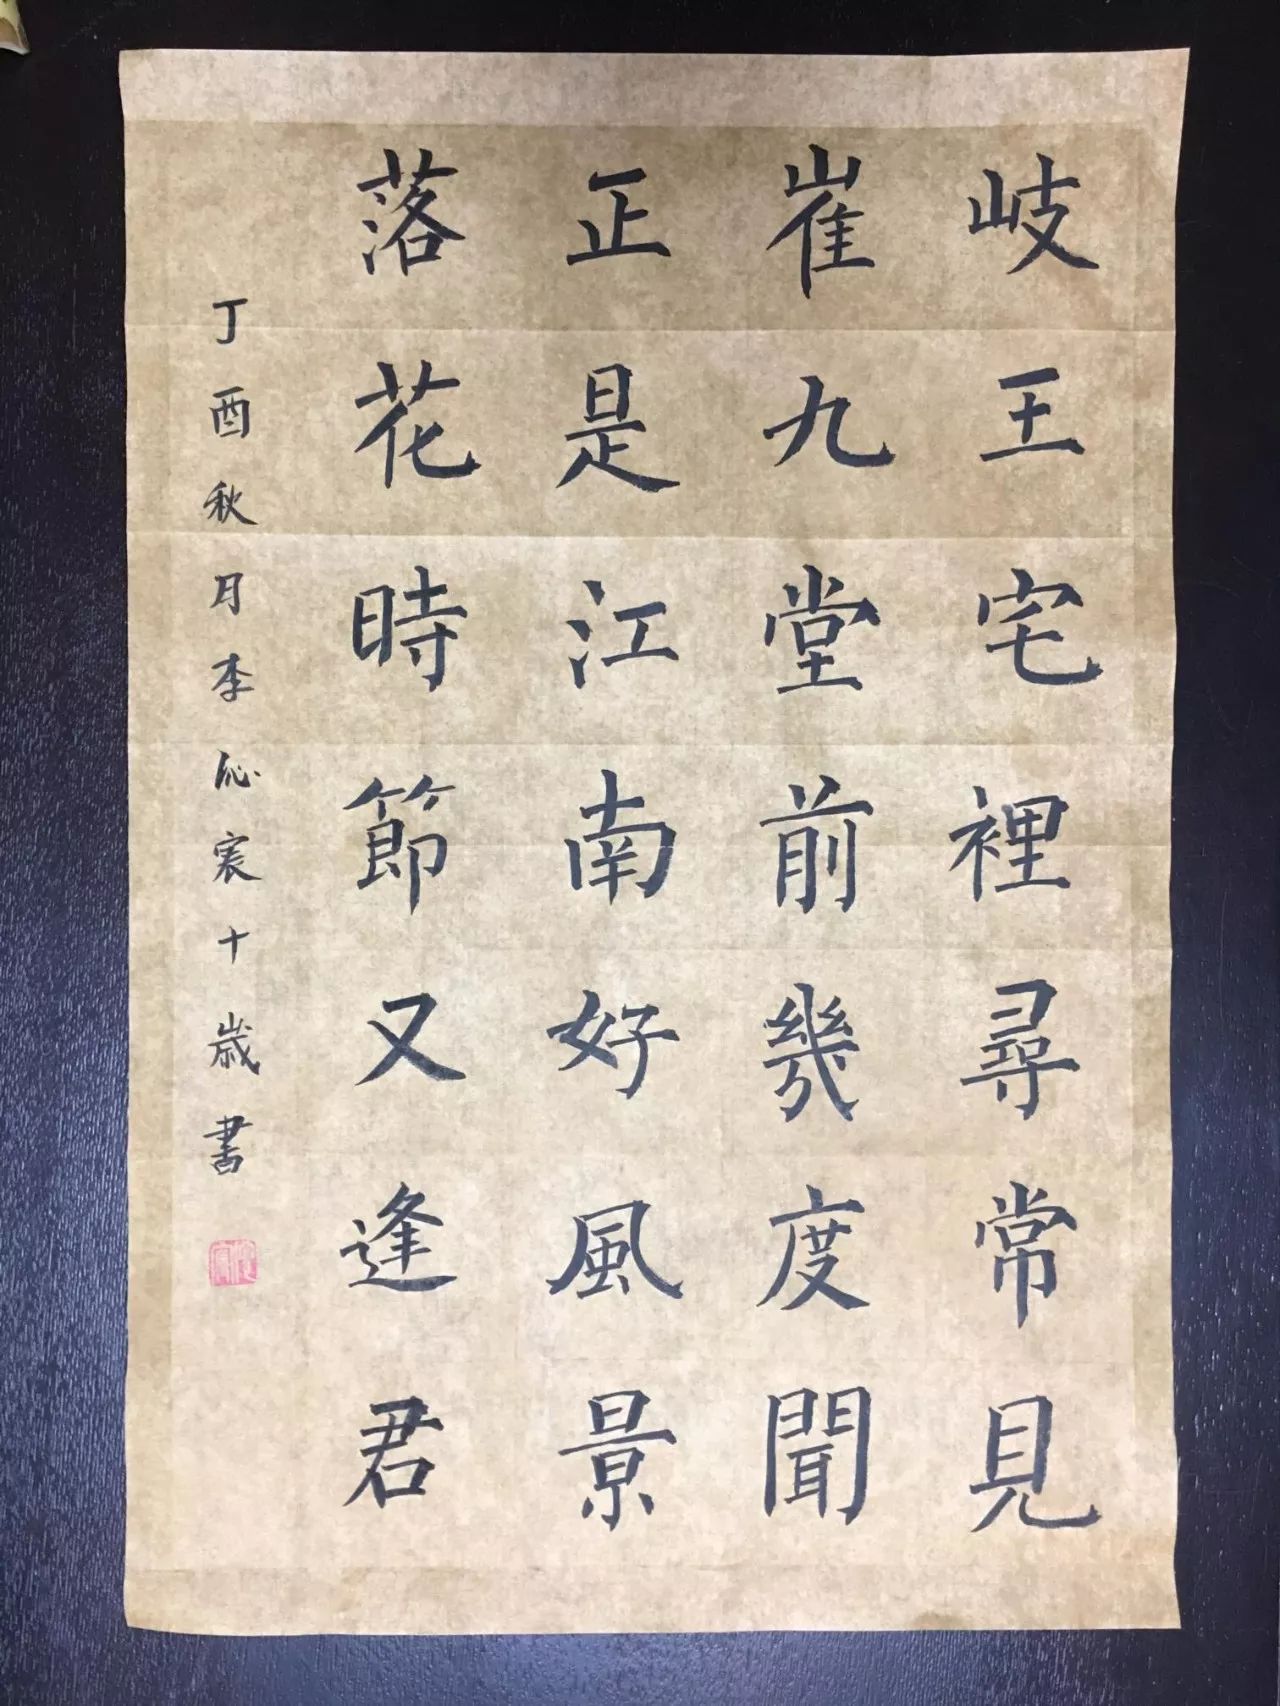 岐王宅裡尋常見
崔九堂前幾度聞
正是江南好風景
落花時節又逢君
丁酉秋月李沁宸十歲書